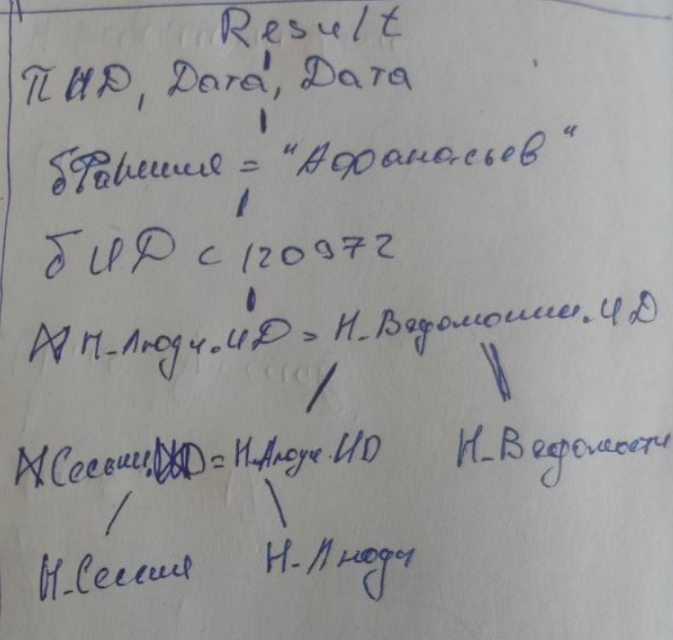 Result
π ИД, Дата, Дата
σ Фамилия = "Афанасьев"
σ ИД < 120972
⋈ Н_Люди.ИД = Н_Ведомости.ИД
⋈ Сессия.ИД = Н_Люди.ИД Н_Ведомости
Н_Сессия Н_Люди